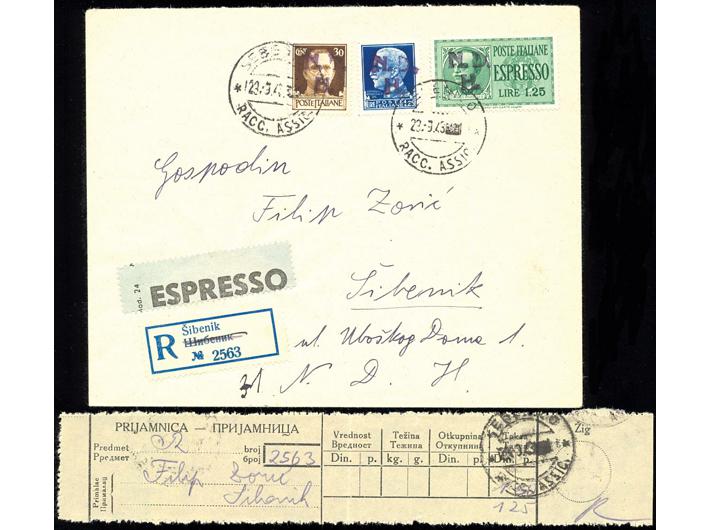 SEBENICO
*29.9.43
RACC. ASSIC.
30
POSTE ITALIANE
N. D.
H.
SEBENICO
* 29.9.43
RACC. ASSIC.
N. D.
H.
POSTE ITALIANE
ESPRESSO
LIRE 1.25
Gospodin
Filip Zorić
Šibenik
ul. Uboškog Doma 1.
N. D. H.
Mod. 24
ESPRESSO
R Šibenik
Шибеник
№ 2563
PRIJAMNICA — ПРИЈАМНИЦА
Predmet
Предмет
R
broj
број
2563
Primalac
Прималац
Filip Zorić
Šibenik
Vrednost
Вредност
Težina
Тежина
Otkupnina
Откупнина
Din. p. kg. g. Din. p. Din. p.
SEBENICO
ASSIC.
Žig
125